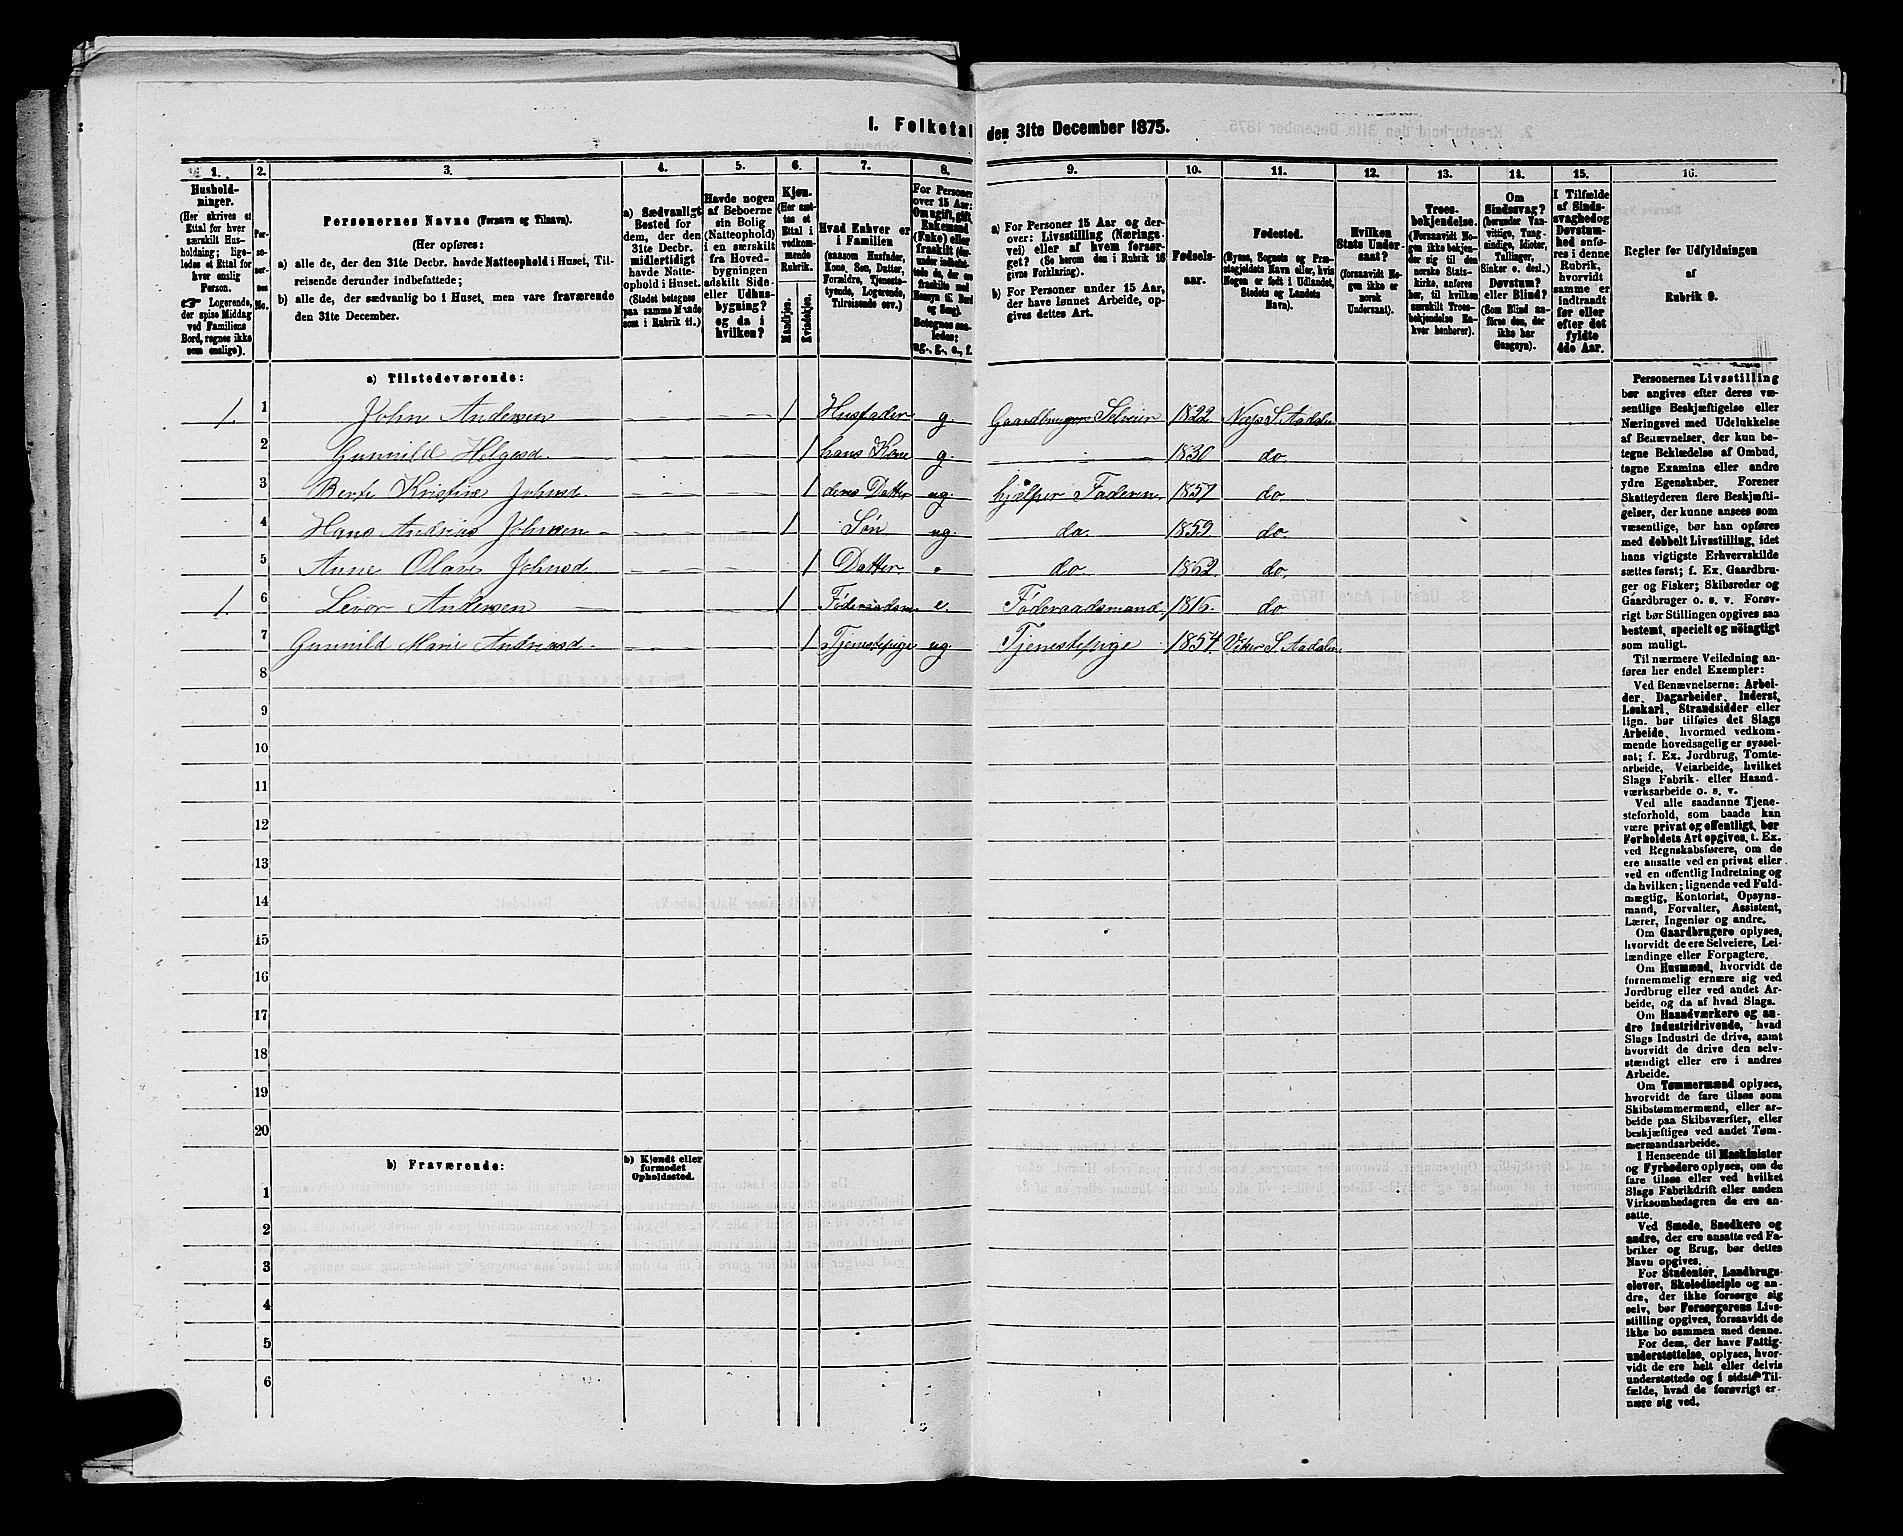 I. Folketal den 31te December 1875.
1. 2. 3. 4. 5. 6. 7. 8. 9. 10. 11. 12. 13. 14. 15. 16.
Hushold-
ninger.
(Her skrives et
Ettal for hver
særskilt Hus-
holdning; lige-
ledes et Ettal for
hver enslig
Person.
☛ Logerende,
der spise Middag
ved Familiens
Bord, regnes ikke
som enslige).
Per-
so-
ner-
nes
No.
Personernes Navne (Fornavn og Tilnavn).
(Her opføres:
a) alle de, der den 31te Decbr. havde Natteophold i Huset, Til-
reisende derunder indbefattede;
b) alle de, der sædvanlig bo i Huset, men vare fraværende
den 31te December.
a) Sædvanligt
Bosted for
dem, der den
31te Decbr.
midlertidigt
havde Natte-
ophold i Huset.
(Stedet betegnes
paa samme Maade
som i Rubrik 11.)
Havde nogen
af Beboerne
sin Bolig
(Natteophold)
i en særskilt
fra Hoved-
bygningen
adskilt Side-
eller Udhus-
bygning?
og da i
hvilken?
Kjøn.
(Her sæt-
tes et
Ettal i
vedkom-
mende
Rubrik.
Mandkjøn.
Kvindekjøn.
Hvad Enhver er
i Familien
(saasom Husfader,
Kone, Søn, Datter,
Forældre, Tjeneste-
tyende, Logerende,
Tilreisende osv.)
For Personer
over 15 Aar:
Om ugift, gift,
Enkemand
(Enke) eller
fraskilt
ug., g., e., f.
a) For Personer 15 Aar og der-
over: Livsstilling (Nærings-
vei) eller af hvem forsør-
get? (Se herom den i Rubrik 16
givne Forklaring).
b) For Personer under 15 Aar,
der have lønnet Arbeide, op-
gives dettes Art.
Fødsels-
aar.
Fødested.
(Byens, Sognets og Præ-
stegjeldets Navn eller, hvis
Nogen er født i Udlandet,
Stedets og Landets
Navn).
Hvilken
Stats Under-
saat?
(forsaavidt No-
gen ikke er
norsk
Undersaat).
Troes-
bekjendelse.
(Forsaavidt No-
gen ikke bekjen-
der sig til den
norske Stats-
kirke, anføres
her, til hvilken
særskilt Troes-
bekjendelse En-
hver henhører).
Om
Sindssvag?
(herunder Van-
vittige, Tung-
sindige, Idioter,
Tullinger,
Sinker o. desl.)
Døvstum?
eller Blind?
(Som Blind an-
føres den, der
ikke har
Gangsyn).
I Tilfælde
af Sinds-
svaghed og
Døvstum-
hed anfø-
res i denne
Rubrik,
hvorvidt
samme er
indtraadt
før eller
efter det
fyldte
4de Aar.
Regler for Udfyldningen
af
Rubrik 9.
a) Tilstedeværende:
1. 1 John Andersen 1 Husfader g. Gaardbruger Selveier 1822 S. Aadalen
2 Gunnild Helgesd. 1 hans Kone g. 1830 do.
3 Berte Kristine Johnsd. 1 deres Datter ug. hjælper Faderen 1857 do.
4 Hans Andreas Johnsen 1 Søn ug. do. 1859 do.
5 Anne Olave Johnsd. 1 Datter do. 1862 do.
1. 6 Levor Andersen 1 Føderaadsm. e. Føderaadsmand 1816. do
7 Gunnild Marie Andreasd. 1 Tjenestepige ug. Tjenestepige 1854 S. Aadalen
8
9
10
11
12
13
14
15
16
17
18
19
20
b) Fraværende:
b) Kjendt eller
formodet
Opholdssted.
1
2
3
4
5
6
Personernes Livsstilling
bør angives efter deres væ-
sentlige Beskjæftigelse eller
Næringsvei med Udelukkelse
af Benævnelser, der kun be-
tegne Beklædelse af Ombud,
tagne Examina eller andre
ydre Egenskaber. Forener
Skatteyderen flere Beskjæfti-
gelser, der kunne ansees som
væsentlige, bør han opføres
med dobbelt Livsstilling, idet
hans vigtigste Erhvervskilde
sættes først; f. Ex. Gaardbru-
ger og Fisker; Skibsreder og
Gaardbruger o. s. v. Forøv-
rigt bør Stillingen opgives saa
bestemt, specielt og nøiagtigt
som muligt.
Til nærmere Veiledning an-
føres her endel Exempler:
Ved Benævnelserne: Arbei-
der, Dagarbeider, Inderst,
Løskarl, Strandsidder eller
lign. bør tilføies det Slags
Arbeide, hvormed vedkom-
mende hovedsagelig er syssel-
sat; f. Ex. Jordbrug, Tomte-
arbeide, Veiarbeide, hvilket
Slags Fabrik- eller Haand-
værksarbeide o. s. v.
Ved alle saadanne Tjene-
steforhold, som baade kan
være privat og offentligt, bør
Forholdets Art opgives, t. Ex.
ved Regnskabsførere, om de
ere ansatte ved en privat eller
ved en offentlig Indretning og
da hvilken; lignende ved Fuld-
mægtig, Kontorist, Opsyns-
mand, Forvalter, Assistent,
Lærer, Ingeniør og andre.
Om Gaardbrugere oplyses,
hvorvidt de ere Selveiere, Lei-
lændinge eller Forpagtere.
Om Husmænd, hvorvidt de
fornemmelig ernære sig ved
Jordbrug eller ved andet Ar-
beide, og da af hvad Slags.
Om Haandværkere og an-
dre Industridrivende, hvad
Slags Industri de drive, samt
hvorvidt de drive den selv-
stændigt eller ere i andres
Arbeide.
Om Tømmermænd oplyses,
hvorvidt de fare tilsøs som
Skibstømmermænd, eller ar-
beide paa Skibsværfter, eller
beskjæftiges ved andet Tøm-
mermandsarbeide.
I Henseende til Maskinister
og Fyrbødere oplyses, om de
fare tilsøs eller ved hvilket
Slags Fabrikdrift eller anden
Virksomhedsgren de ere an-
satte.
Ved Smede, Snedkere og
andre, der ere ansatte ved Fa-
briker og Brug, bør dettes
Navn opgives.
For Studenter, Landbrugs-
elever, Skoledisciple og an-
dre, der ikke forsørge sig
selv, bør Forsørgerens Livs-
stilling opgives, forsaavidt de
ikke bo sammen med denne.
For dem, der have Fattig-
understøttelse, oplyses, hvor-
vidt de ere helt eller delvis
understøttede og i sidste Til-
fælde, hvad de forøvrigt er-
nære sig ved.